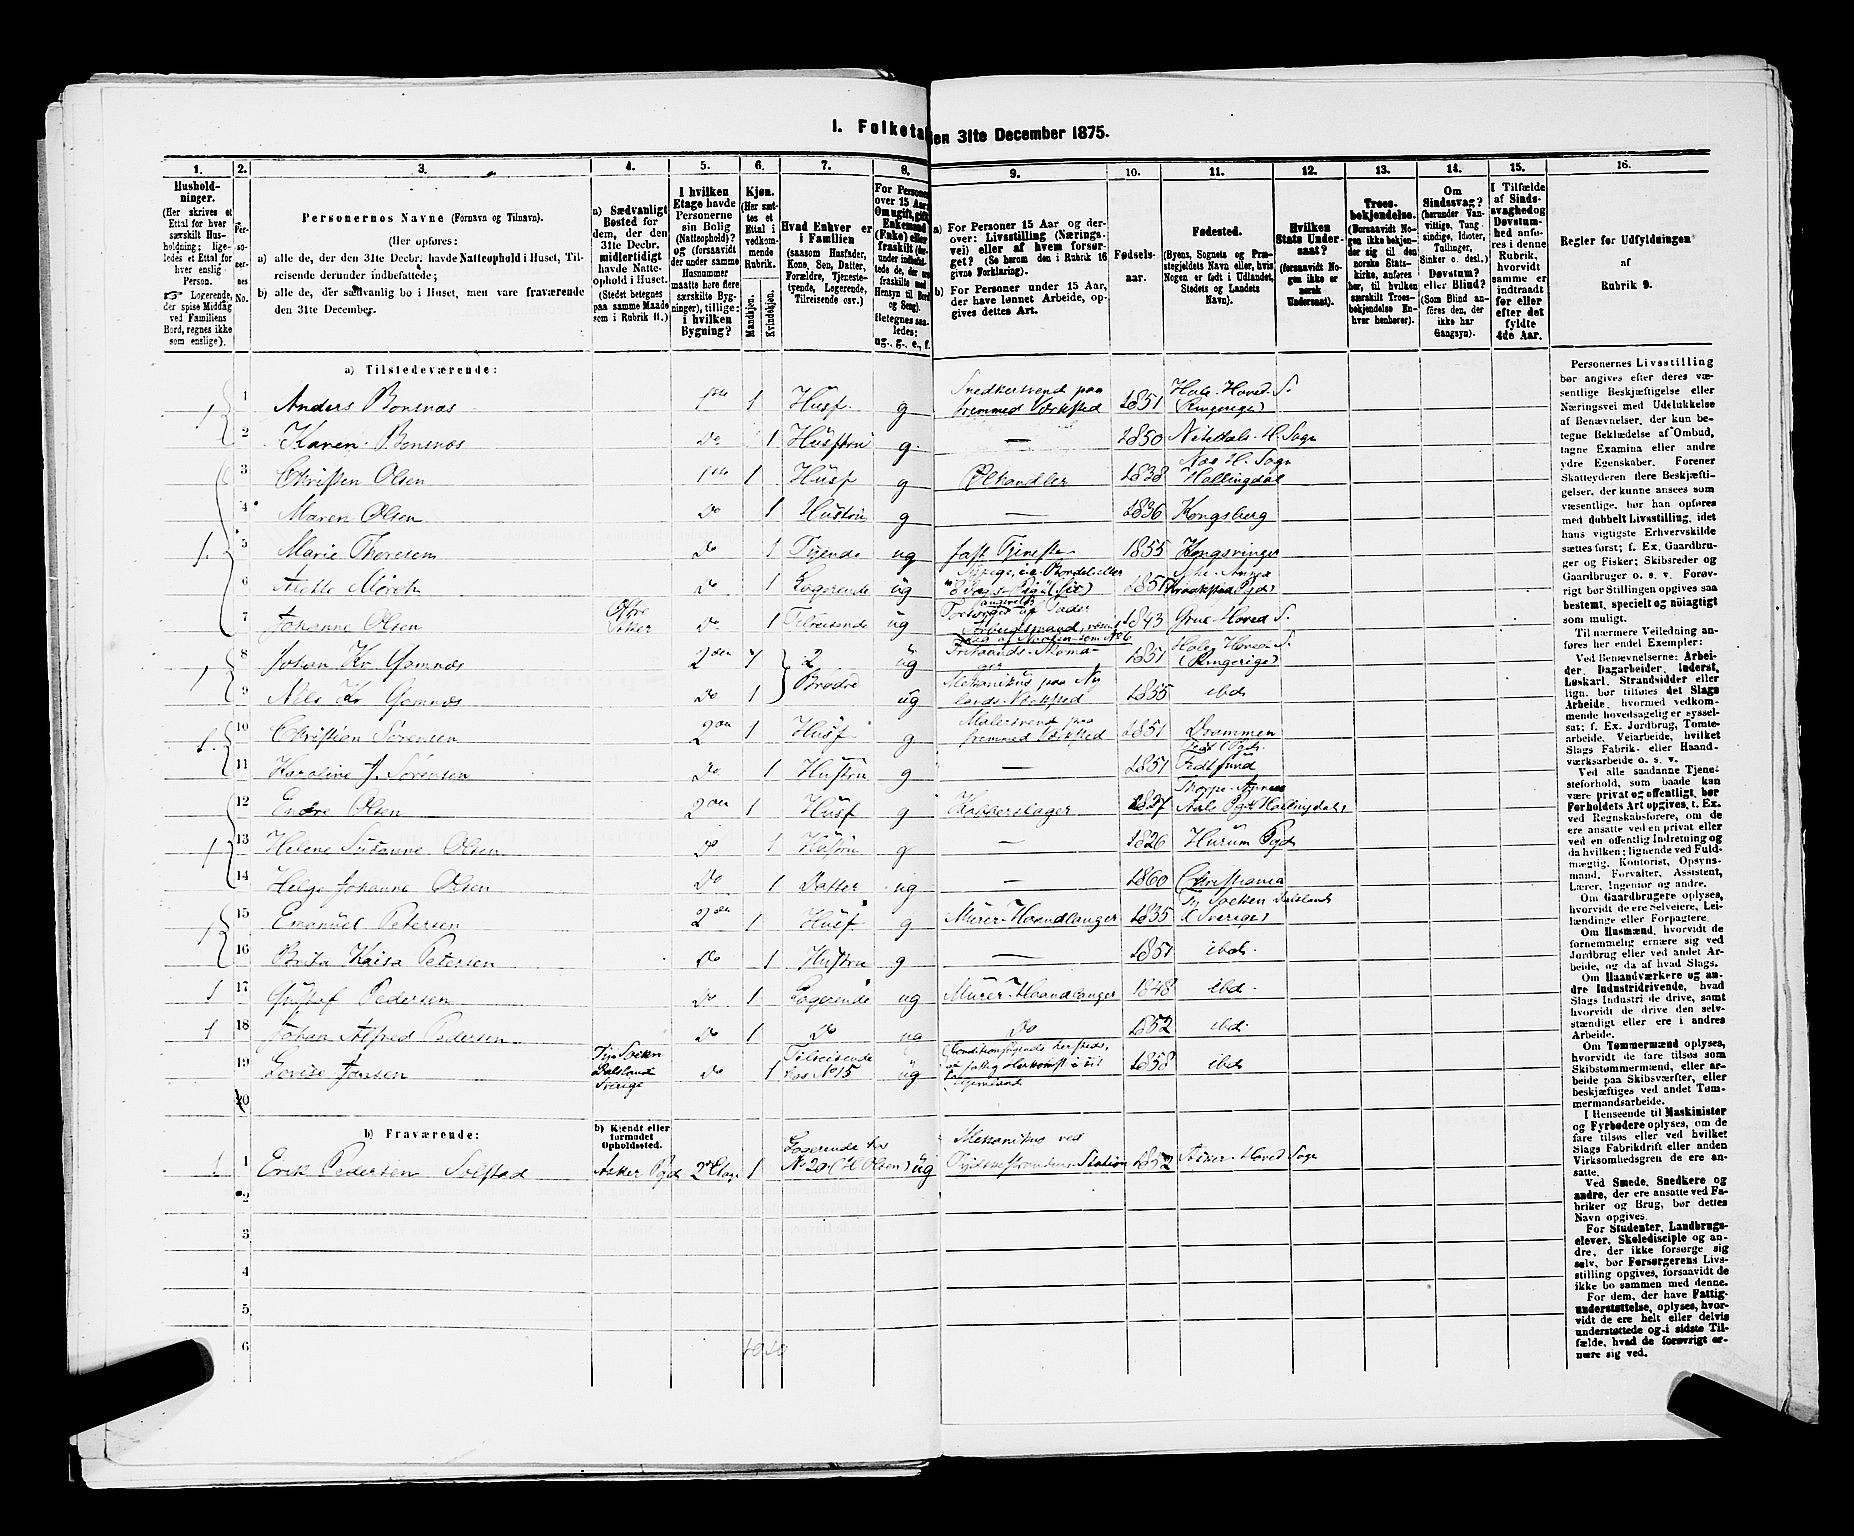 I. Folketal den 31te December 1875.
1. 2. 3. 4. 5. 6. 7. 8. 9. 10. 11. 12. 13. 14. 15. 16.
Husholdninger. (Her skrives et Ettal for hver særskilt Husholdning; ligeledes et Ettal for hver enslig Person. Logerende, der spise Middag ved Familiens Bord, regnes ikke som enslige).
Personernes No.
Personernes Navne (Fornavn og Tilnavn).
(Her opføres:
a) alle de, der den 31te Decbr. havde Natteophold i Huset, Tilreisende derunder indbefattede;
b) alle de, der sædvanlig bo i Huset, men vare fraværende den 31te December.
a) Sædvanligt Bosted for dem, der den 31te Decbr. midlertidigt havde Natteophold i Huset. (Stedet betegnes paa samme Maade som i Rubrik 11.)
I hvilken Etage havde Personerne sin Bolig (Natteophold)? og (forsaavidt der under samme Husnummer maatte høre flere særskilte Bygninger), tillige: i hvilken Bygning?
Kjøn. (Her sættes et Ettal i vedkommende Rubrik.
Mandkjøn. Kvindekjøn.
Hvad Enhver er i Familien (saasom Husfader, Kone, Søn, Datter, Forældre, Tjenestetyende, Logerende, Tilreisende osv.)
For Personer over 15 Aar: Om ugift, gift, Enkemand (Enke) eller fraskilt
Betegnes saaledes: ug., g., e., f.
a) For Personer 15 Aar og derover: Livsstilling (Næringsvei) eller af hvem forsørget? (Se herom den i Rubrik 16 givne Forklaring).
b) For Personer under 15 Aar, der have lønnet Arbeide, opgives dettes Art.
Fødselsaar.
Fødested. (Byens, Sognets og Præstegjeldets Navn eller, hvis Nogen er født i Udlandet, Stedets og Landets Navn).
Hvilken Stats Undersaat? (forsaavidt Nogen ikke er norsk Undersaat).
Troesbekjendelse. (Forsaavidt Nogen ikke bekjender sig til den norske Statskirke, anføres her, til hvilken særskilt Troesbekjendelse Enhver henhører).
Om Sindssvag? (herunder Vanvittige, Tungsindige, Idioter, Tullinger, Sinker o. desl.) Døvstum? eller Blind? (Som Blind anføres den, der ikke har Gangsyn).
I Tilfælde af Sindssvaghed og Døvstumhed anføres i denne Rubrik, hvorvidt samme er indtraadt før eller efter det fyldte 4de Aar.
Regler for Udfyldningen af Rubrik 9.
a) Tilstedeværende:
1 Anders Bonsnæs 1ste 1 Husf. g Snedkersvend paa fremmed Værksted 1851 Hole Hoved S. (Ringerige)
2 Karen Bonsnæs Do 1 Hustru g. — 1850 Nitedals H. Sogn
3 Christen Olsen 1ste 1 Husf g Ølhandler 1838 Næs H. Sogn Hallingdal
4 Maren Olsen Do 1 Hustru g — 1836 Kongsberg
5 Marie Thoresen Do 1 Tjende ug fast Tjeneste 1855 Kongsvinger
6 Mørch Do 1 Logerende ug
7 Johanne Olsen Asker Do 1 Tilreisende ug 1843 Grue Hoved S.
8 Johan Kr Gomnæs 2den 1 2 Brødre ug 1851 Hole Hoved S. (Ringerige)
9 Nils Kr Gomnæs Do 1 ug Mekanikus paa Nylands Værksted 1855 ibd
10 Christian Sørensen 2den 1 Husf g Malersvend paa fremmed Værksted 1851 Drammen
11 Karoline J. Sørensen Do 1 Hustru g — 1851 Fedt Pgd. Fedtsund
12 Endre Olsen 2den 1 Husf g Kobberslager 1827 Thorpe Annex Aals Pgd Hallingdal
13 Helene Susanne Olsen Do 1 Hustru g — 1826 Hurum Pgd
14 Helga Johanne Olsen Do 1 Datter ug 1860 Christiania
15 Emanuel Petersen 2den 1 Husf g Murer-Haandlanger 1835 Socken Dalsland (Sverige)
16 Brita Kaisa Petersen Do 1 Hustru g — 1851 ibd.
17 Gustaf Pedersen Do 1 Logerende ug Murer-Haandlanger 1848 ibd.
18 Johan Alfred Pedersen Do 1 Do ug Do 1852 ibd.
19 Lovise Jansen Socken Dalsland Sverige Do 1 Tilreisende hos No 15 ug 1858 ibd
20
b) Fraværende:
b) Kjendt eller formodet Opholdssted.
1 Erik Pedersen Solstad Asker Pgd 2 Etag. 1 Logerende hos No 20 (H Olsen) ug Mekanikus ved Station 1852 Asker Hoved Sogn
2
3
4
5
6
Personernes Livsstilling bør angives efter deres væsentlige Beskjæftigelse eller Næringsvei med Udelukkelse af Benævnelser, der kun betegne Beklædelse af Ombud, tagne Examina eller andre ydre Egenskaber. Forener Skatteyderen flere Beskjæftigelser, der kunne ansees som væsentlige, bør han opføres med dobbelt Livsstilling, idet hans vigtigste Erhvervskilde sættes først; f. Ex. Gaardbruger og Fisker; Skibsreder og Gaardbruger o. s. v. Forøvrigt bør Stillingen opgives saa bestemt, specielt og nøiagtigt som muligt.
Til nærmere Veiledning anføres her endel Exempler:
Ved Benævnelserne: Arbeider, Dagarbeider, Inderst, Løskarl, Strandsidder eller lign. bør tilføies det Slags Arbeide, hvormed vedkommende hovedsagelig er sysselsat; f. Ex. Jordbrug, Tomtearbeide, Veiarbeide, hvilket Slags Fabrik- eller Haandværksarbeide o. s. v.
Ved alle saadanne Tjenesteforhold, som baade kan være privat og offentligt, bør Forholdets Art opgives, t. Ex. ved Regnskabsførere, om de ere ansatte ved en privat eller ved en offentlig Indretning og da hvilken; lignende ved Fuldmægtig, Kontorist, Opsynsmand, Forvalter, Assistent, Lærer, Ingeniør og andre.
Om Gaardbrugere oplyses, hvorvidt de ere Selveiere, Leilændinge eller Forpagtere.
Om Husmænd, hvorvidt de fornemmelig ernære sig ved Jordbrug eller ved andet Arbeide, og da af hvad Slags.
Om Haandværkere og andre Industridrivende, hvad Slags Industri de drive, samt hvorvidt de drive den selvstændigt eller ere i andres Arbeide.
Om Tømmermænd oplyses, hvorvidt de fare tilsøs som Skibstømmermænd, eller arbeide paa Skibsværfter, eller beskjæftiges ved andet Tømmermandsarbeide.
I Henseende til Maskinister og Fyrbødere oplyses, om de fare tilsøs eller ved hvilket Slags Fabrikdrift eller anden Virksomhedsgren de ere ansatte.
Ved Smede, Snedkere og andre, der ere ansatte ved Fabriker og Brug, bør dettes Navn opgives.
For Studenter, Landbrugselever, Skoledisciple og andre, der ikke forsørge sig selv, bør Forsørgerens Livsstilling opgives, forsaavidt de ikke bo sammen med denne.
For dem, der have Fattigunderstøttelse, oplyses, hvorvidt de ere helt eller delvis understøttede og i sidste Tilfælde, hvad de forøvrigt ernære sig ved.